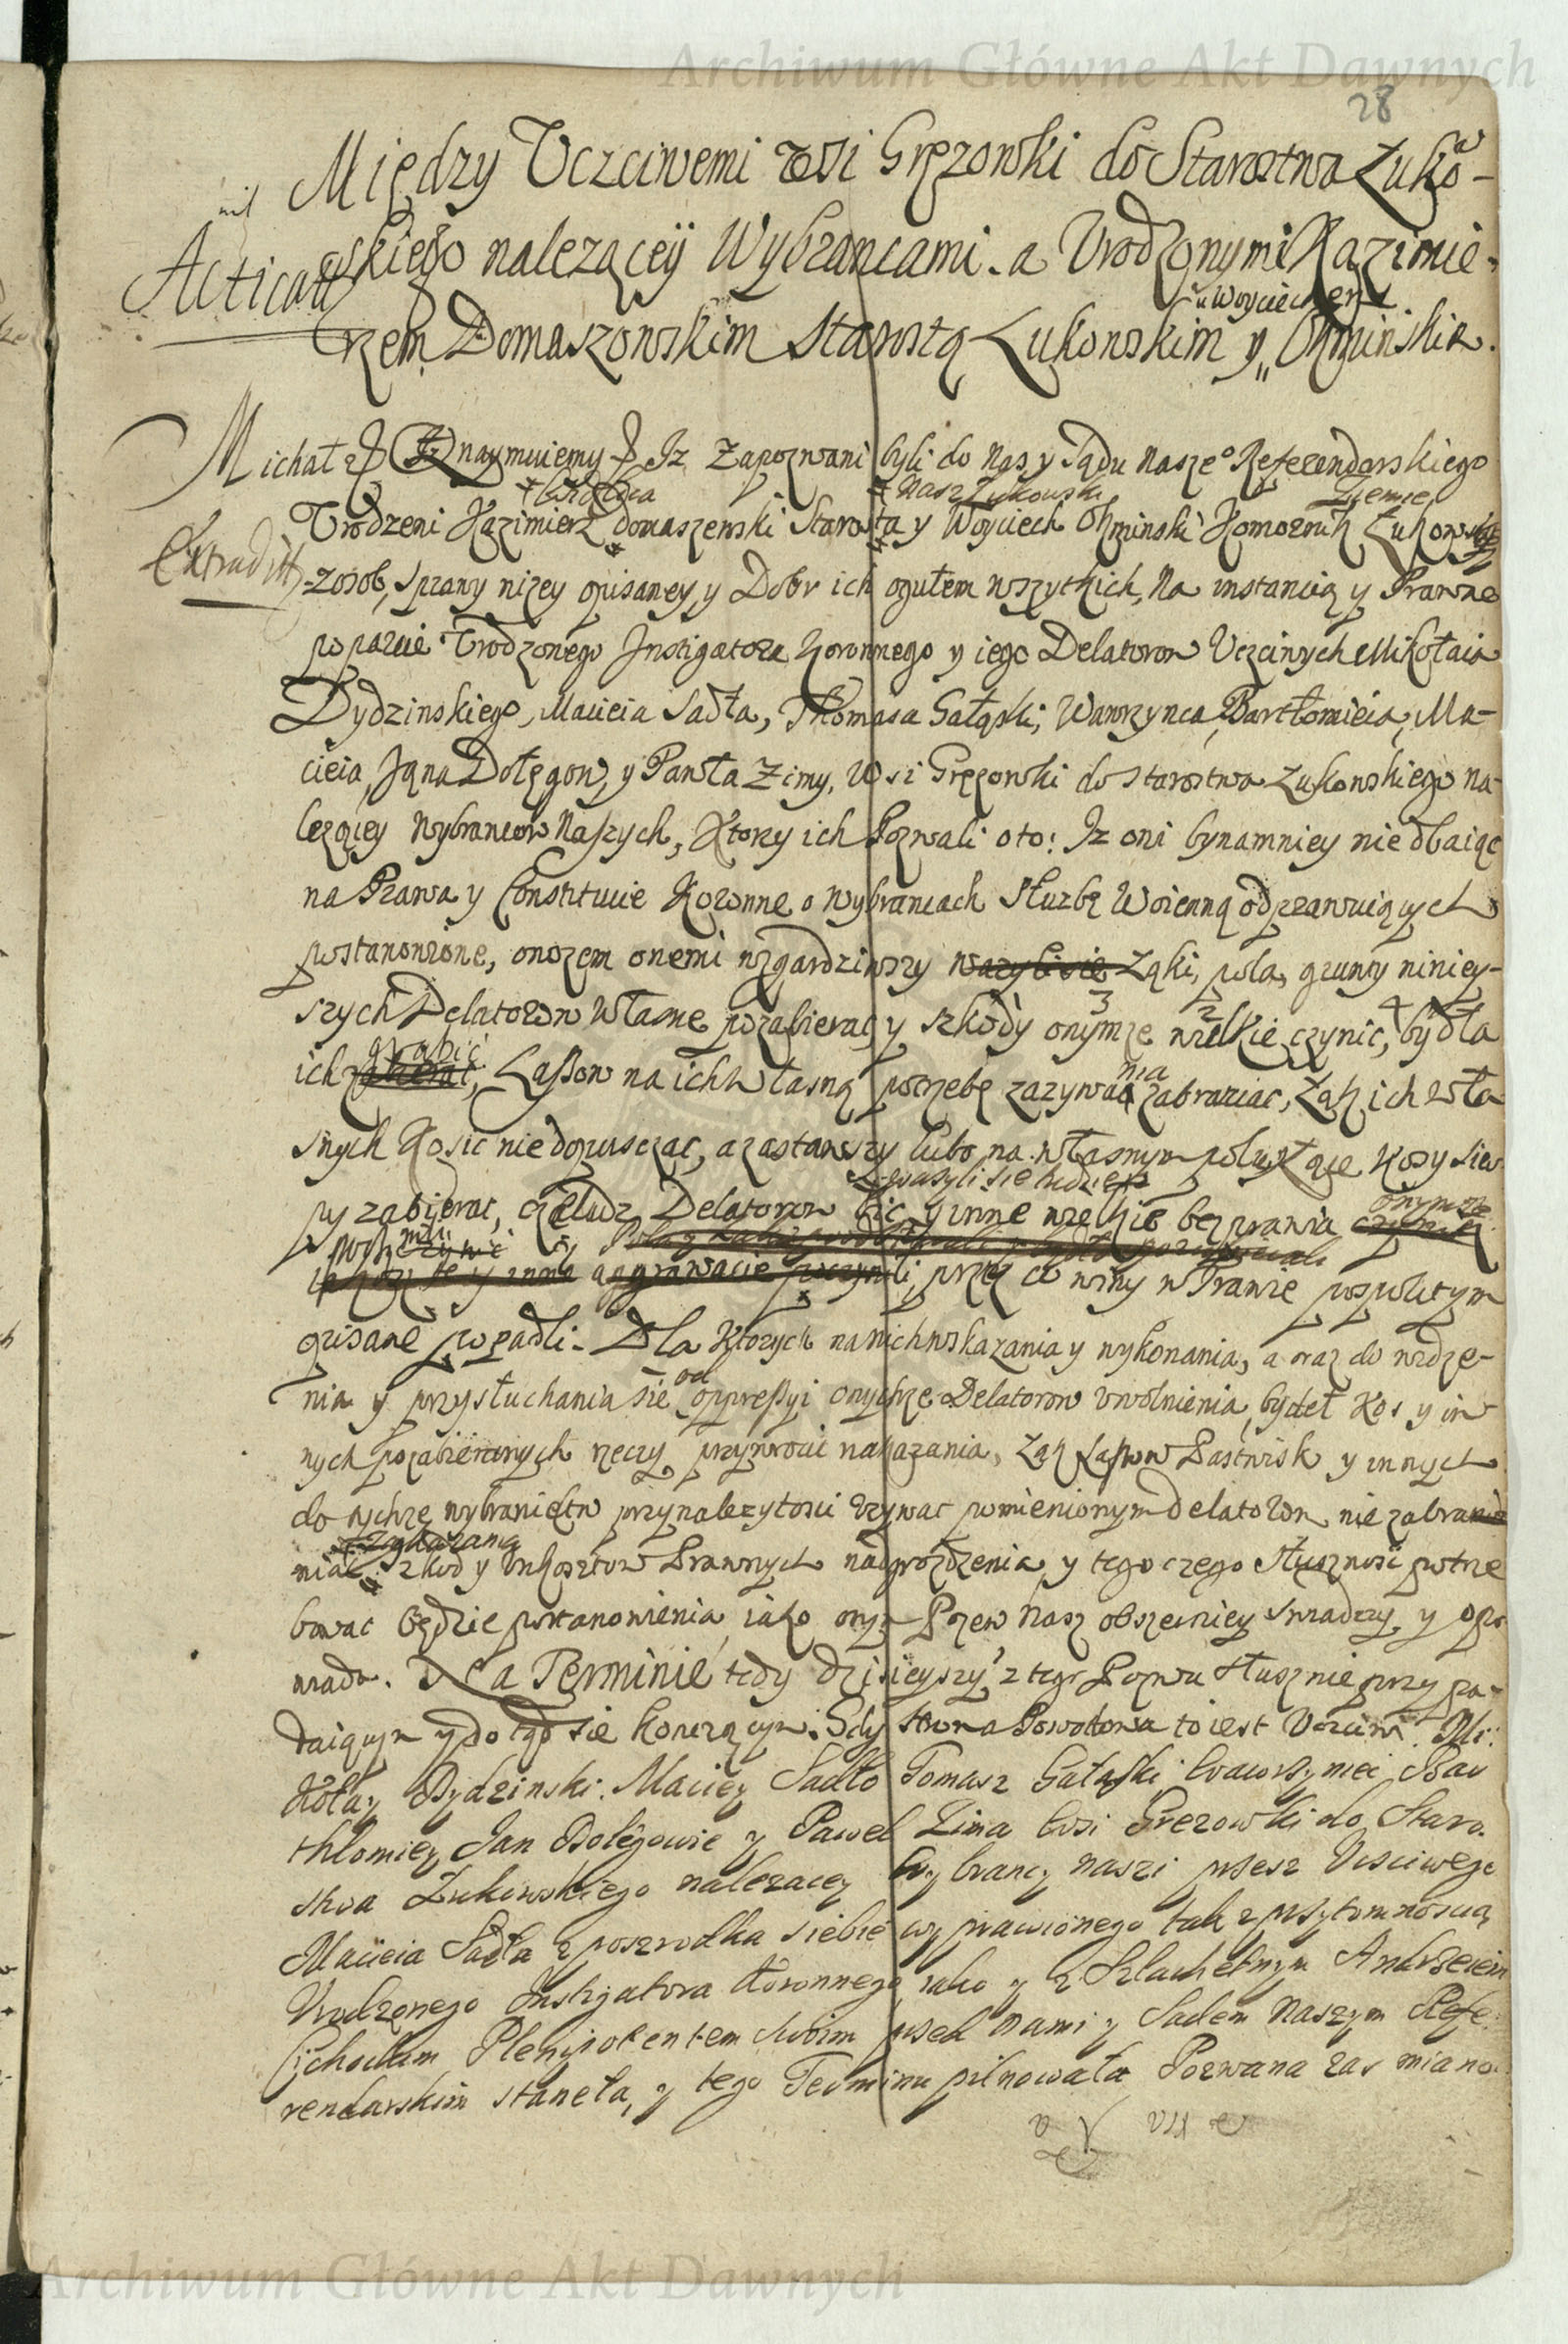 Archiwum Główne Akt Dawnych
28
Między Uczciwemi wsi Gręzowki do Starostwa Łuko-
skiego nalezącey Wybrancami. a Urodzonymi Kazimie-
Acticatt
u Woyciechem
rzem Domaszowskim Starostą Łukowskim y Ożminskim.
Michał Oznaymuiemy Iz Zapozwani byli do Nas y Sądu Nasze° Referendarskiego
Nasz Łukowski Ziemie
Urodzeni Kazimierz domaszewski Starosta y Woyciech Ożminski Komornik Łukowski
Extradit
z osob, sprawy nizey opisaney y Dobr ich ogułem wszytkich, Na instancią y Prawne
poparcie Urodzonego Instigatora Koronnego y iego Delatorow Uczciwych Mikołaia
Dydzinskiego, Macieia Sadła, Thomasa Gałąski, Wawrzynca, Bartłomieia, Ma-
cieia, Jana Dołęgow, y Pawła Zimy, Wsi Gręzowki do starostwa Łukowskiego na-
lezącey Wybrancow Naszych, Ktorzy ich Pozwali oto: Iz oni bynamniey nie dbaiąc
na Prawa y Constitucie Koronne o Wybrancach Słuzbę Woienną odprawuiących
postanowione, owozem onemi wzgardziwszy wazyli sie Łąki, pola, grunty niniey-
szych Delatorow Własne pozabierac, y szkody onymze wielkie czynic, bydła
3 2 4
grabic
ich zabierac, Lassow na ich własną potrzebę zazywania zabraniac, Łąk ich wła-
snych Kosic niedopuszczac, a zastawszy lubo na własnym polu y Łące Kosy sier
wazyli sie ludziesz
py zabierac, czeladz Delatorow bic y inne wielkie bezprawia czynic
onymze
inne aggrawacie poczynili, przez co winy w Prawie pospolitym
opisane popadli. Dla Ktorych na nich wskazania y wykonania, a oraz do widze-
nia y przysłuchania sie od oppressyi onychze Delatorow uwolnienia, bydeł Kos y in-
nych pozabieranych rzeczy przywrocic nakazania, Łąk Lassow Pastwisk y innych
do tychze wybraniectw przynalezytosci uzywac pomienionym delatorom nie zabra
zakazania
niac szkod y unkosztow Prawnych nadgrodzenia y tego czego słusznosc potrze
bowac będzie postanowienia iako onym Pozew Nasz obszerniey swiadczy y opo
wiada. Na Terminie tedy dzisieyszym z tego Pozwu słusznie przypa-
daiącym y do tąd sie konczącym. Gdy strona Powodowa to iest Uczciwi Mi-
kołay Dydzinski. Maciey Sadło Tomasz Gałąski Wawrzyniec Bar
thłomiey Jan Dołęgowie y Paweł Zima wsi Grezowki do Staro.
stwa Łukowskiego nalezacey Wybrancy naszi przesz Ucsciwego
Macieia Sadła z poszrodka siebie wyprawionego tak z przytomnoscią
Urodzonego Instigatora Koronnego, iako y z Szlachetnym Andrzeiem
Cichockim Plenipotentem Swoim przed Nami y Sadem Naszym Refe-
rendarskim staneła, y tego Terminu pilnowała Pozwana zas miano
Archiwum Główne Akt Dawnych